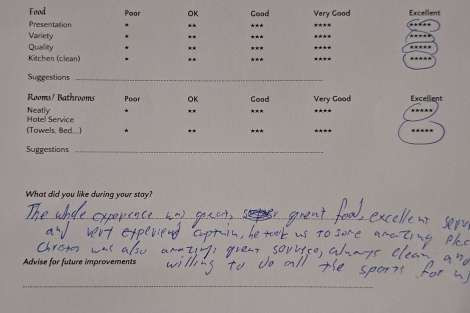 Food Poor OK Good Very Good Excellent
Presentation * ** *** **** *****
Variety * ** *** **** *****
Quality * ** *** **** *****
Kitchen (clean) * ** *** **** *****
Suggestions
Rooms/ Bathrooms Poor OK Good Very Good Excellent
Neatly * ** *** **** *****
Hotel Service
(Towels, Bed...) * ** *** **** *****
Suggestions
What did you like during your stay?
The whole experience was great, great food, excellent
and very captain, he took us to some amazing
was also amazing: great service, always clean and
Advise for future improvements
willing to do all the sports for us